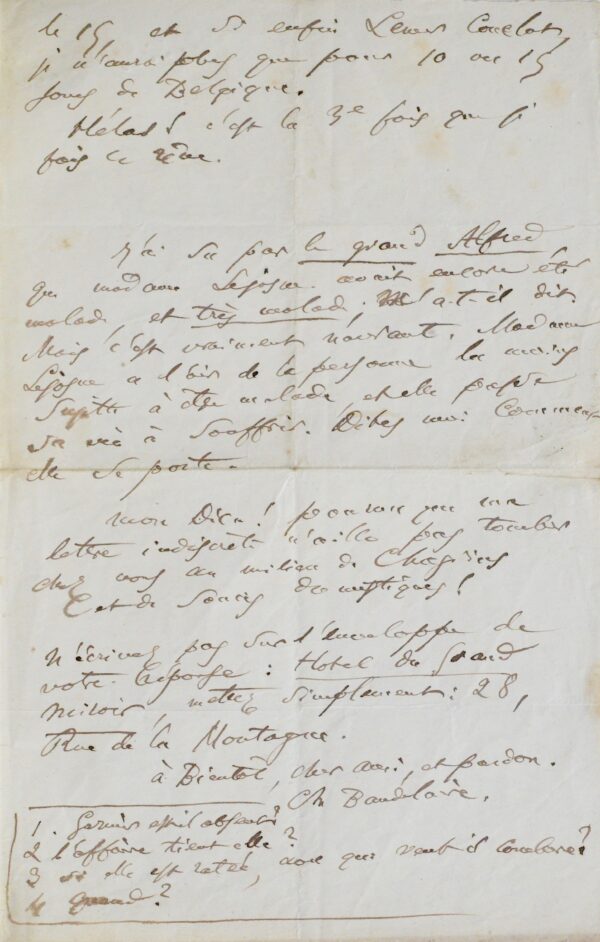 le 15, et si enfin Lemer conclut,
je n'aurai plus que pour 10 ou 15
jours de Belgique.
Hélas ! c'est la 3e fois que je
fais ce rêve.
J'ai su par le grand Alfred
que madame Lejosne avait encore été
malade, et très malade, m'a-t-il dit.
Mais c'est vraiment navrant. Madame
Lejosne a l'air de la personne la moins
sujette à être malade, et elle passe
sa vie à souffrir. Dites-moi comment
elle se porte.
Mon Dieu ! pourvu que ma
lettre indiscrète n'aille pas tomber
chez vous au milieu de chagrins
et de soucis domestiques !
N'écrivez pas sur l'enveloppe de
votre réponse : Hotel du Grand
Miroir, mettez simplement : 28,
Rue de la Montagne.
à Bientôt, cher ami, et pardon.
Ch Baudelaire.
1. Garnier est-il absent ?
2 l'affaire tient elle ?
3 si elle est ratée, avec qui veut-il conclure ?
4 quand ?